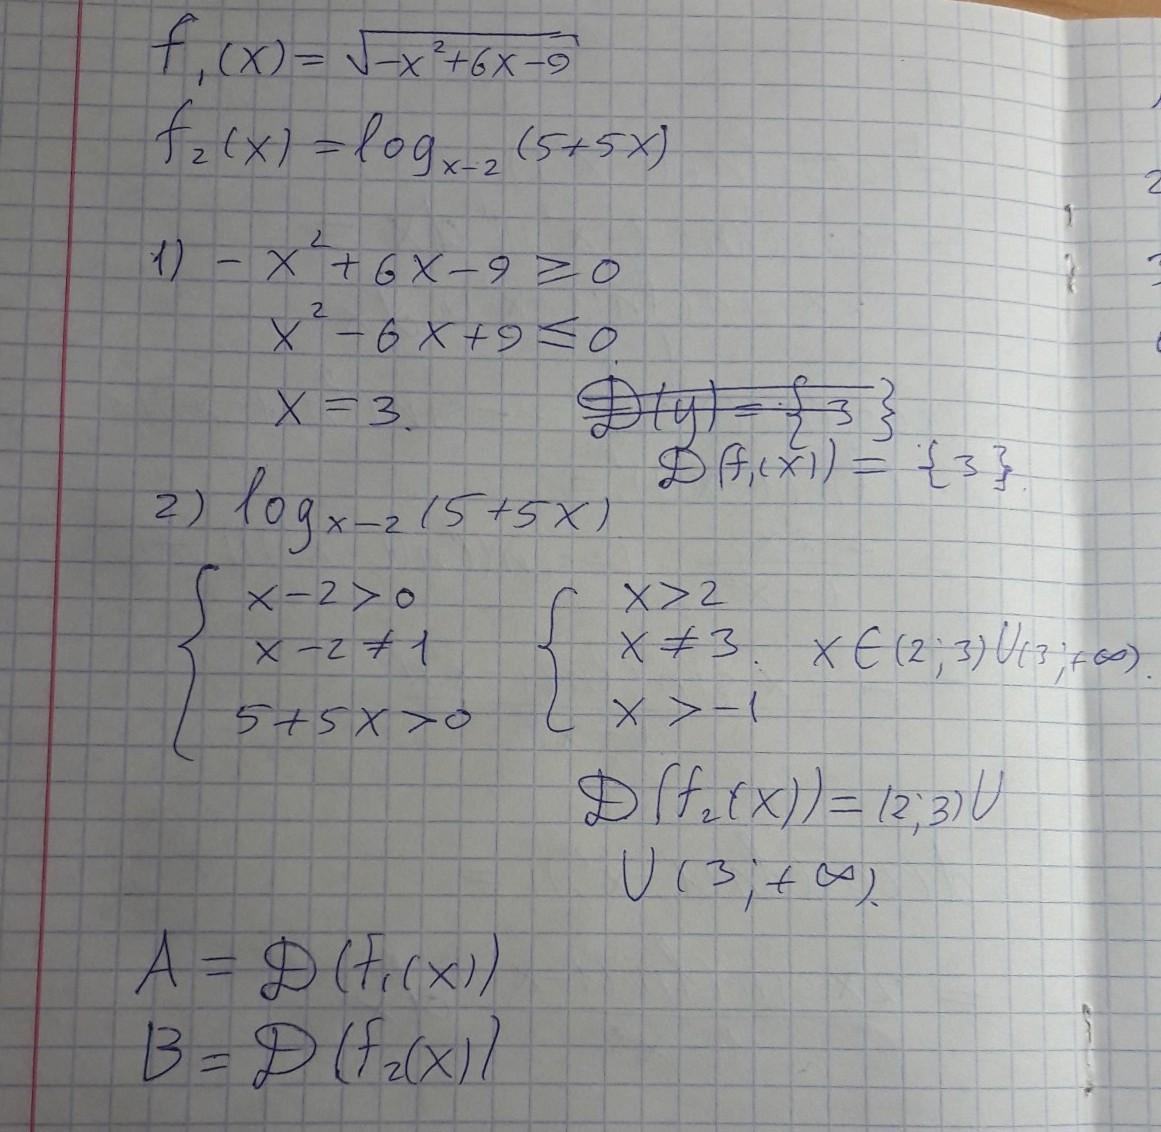 f₁(x) = √(-x²+6x-9)
f₂(x) = log_{x-2} (5+5x)
1) -x²+6x-9 ≥ 0
x²-6x+9 ≤ 0.
x = 3. D(y) = {3}
D(f₁(x)) = {3}.
2) log_{x-2} (5+5x)
{ x-2>0 { x>2
x-2≠1 x≠3. x∈(2;3)U(3;+∞).
5+5x>0 x>-1
D(f₂(x)) = (2;3)U
U(3;+∞).
A = D(f₁(x))
B = D(f₂(x))